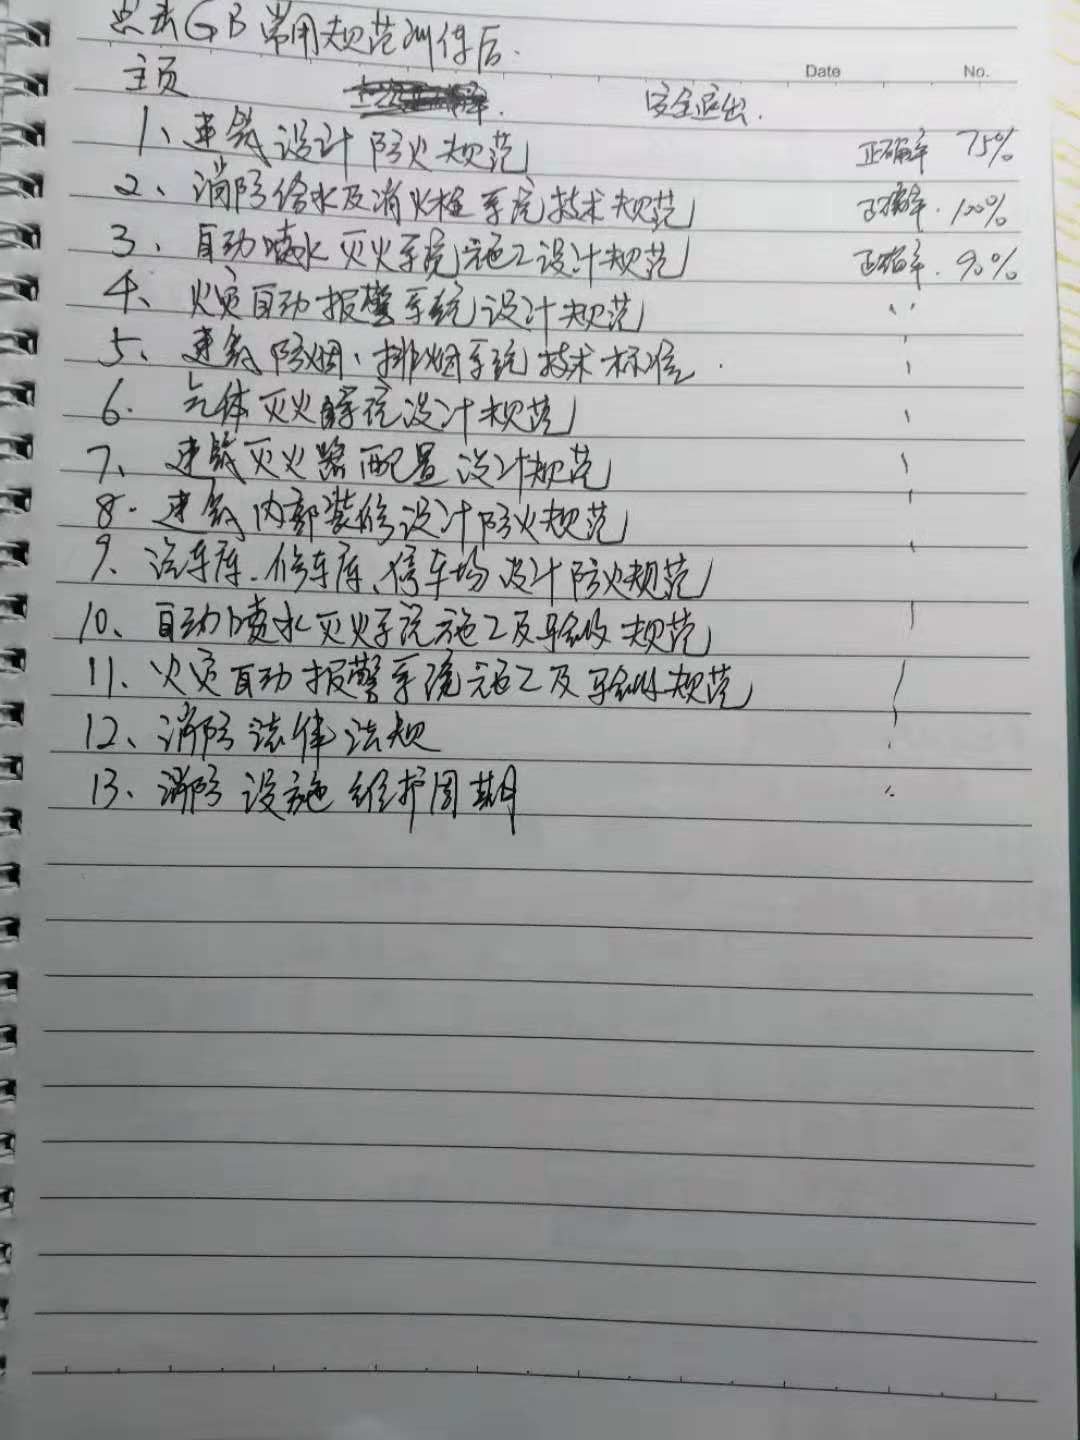 点击GB常用规范训练后.
Date No.
主页 安全退出.
1、建筑设计防火规范 正确率 75%
2、消防给水及消火栓系统技术规范 正确率. 100%
3、自动喷水灭火系统施工设计规范 正确率. 90%
4、火灾自动报警系统设计规范
5、建筑防烟、排烟系统技术标准.
6. 气体灭火系统设计规范
7、建筑灭火器配置设计规范
8. 建筑内部装修设计防火规范
9、汽车库、修车库、停车场设计防火规范
10、自动喷水灭火系统施工及验收规范
11、火灾自动报警系统施工及验收规范
12、消防法律法规
13、消防设施维护周期